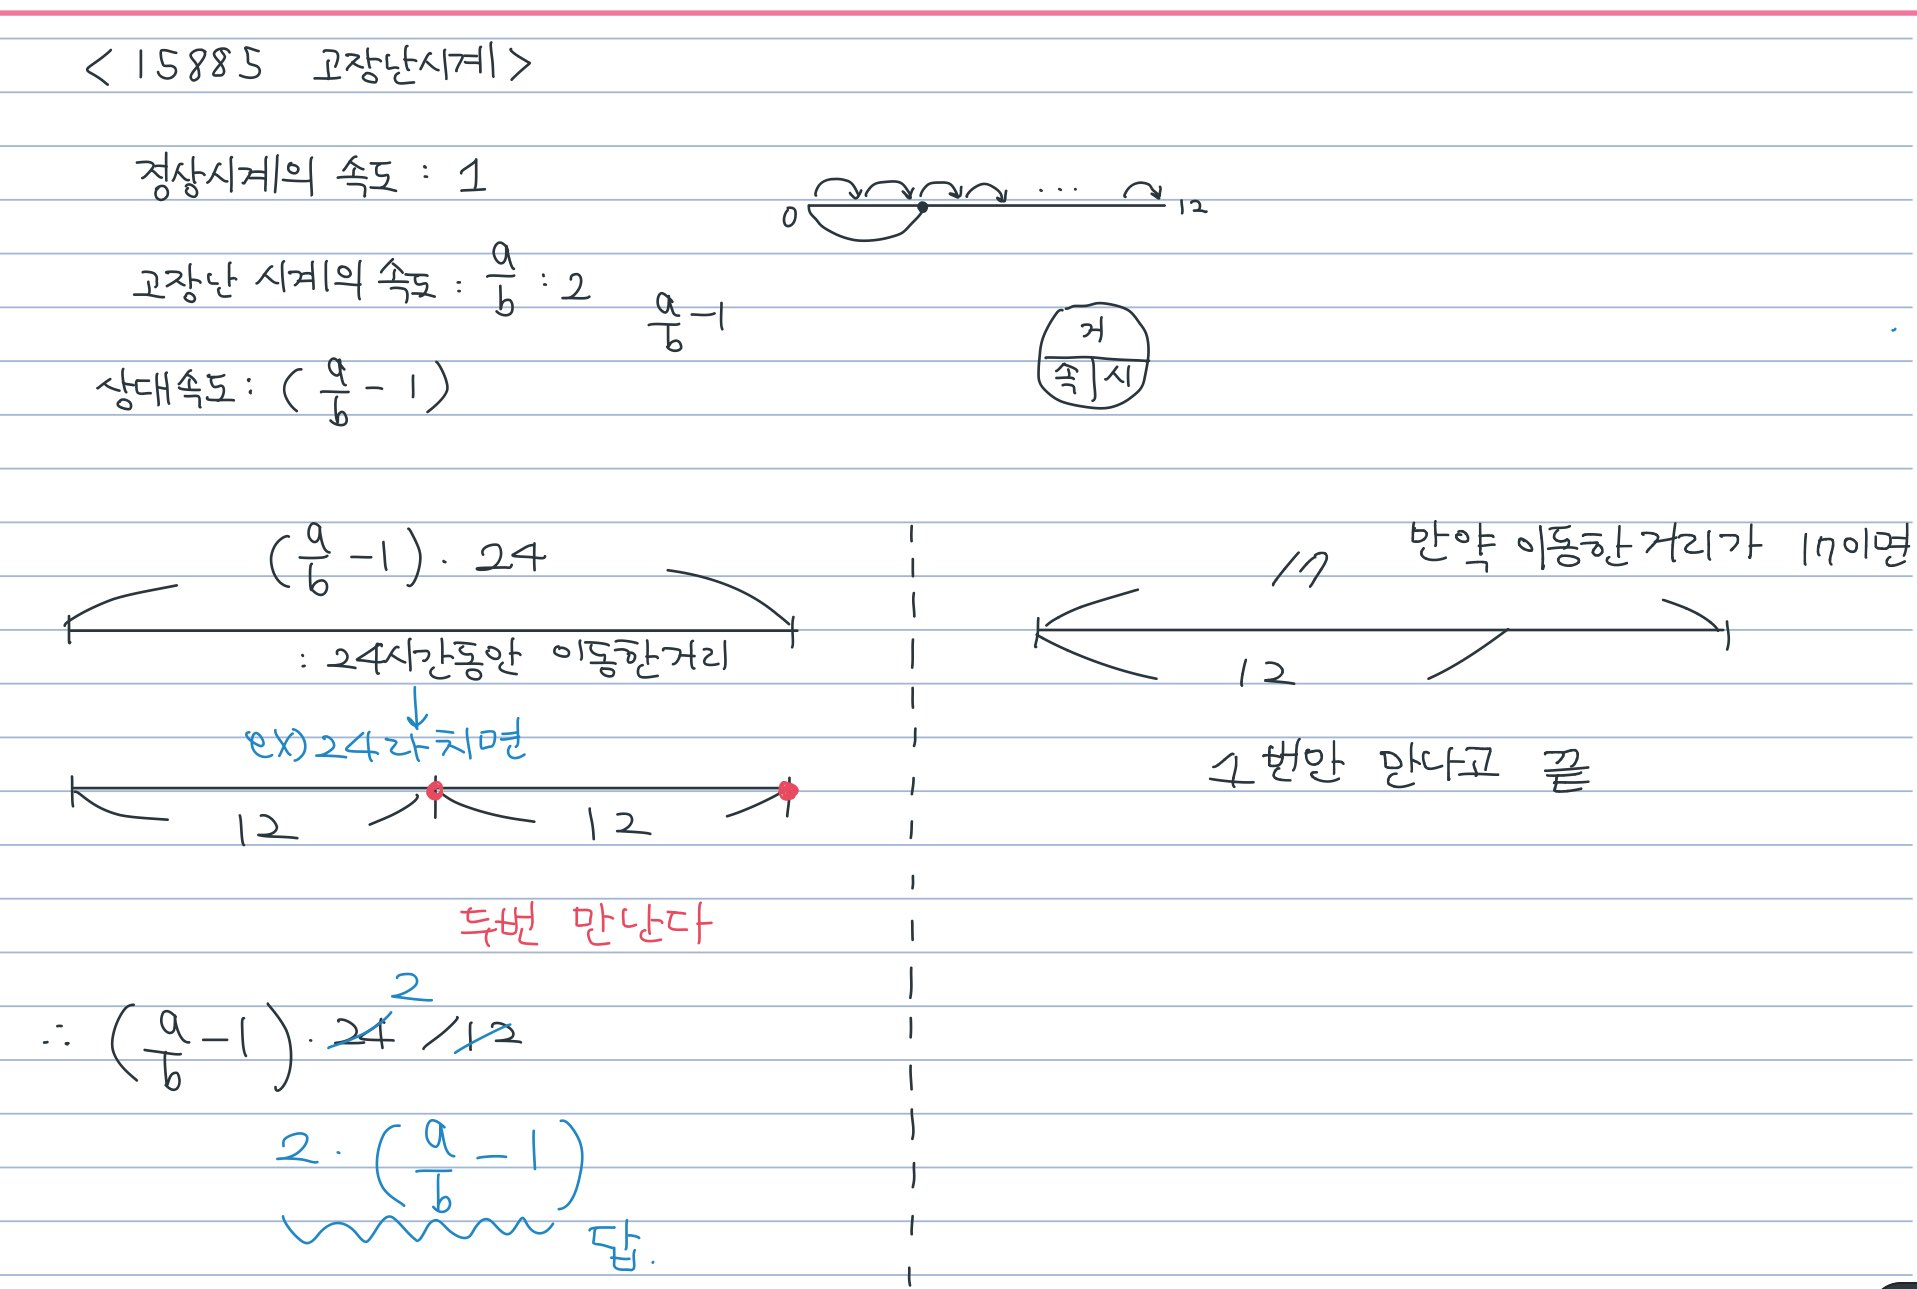 < 15885 고장난시계>
정상시계의 속도 : 1
0 ... 12
고장난 시계의 속도 : a/b : 2
a/b - 1
거
속 시
상대속도 : (a/b - 1)
(a/b - 1) · 24
: 24시간동안 이동한거리
ex) 24라 치면
12 12
두번 만난다
∴ (a/b - 1) · 24 / 12
2
2 · (a/b - 1)
답.
만약 이동한거리가 17이면
17
12
1번만 만나고 끝